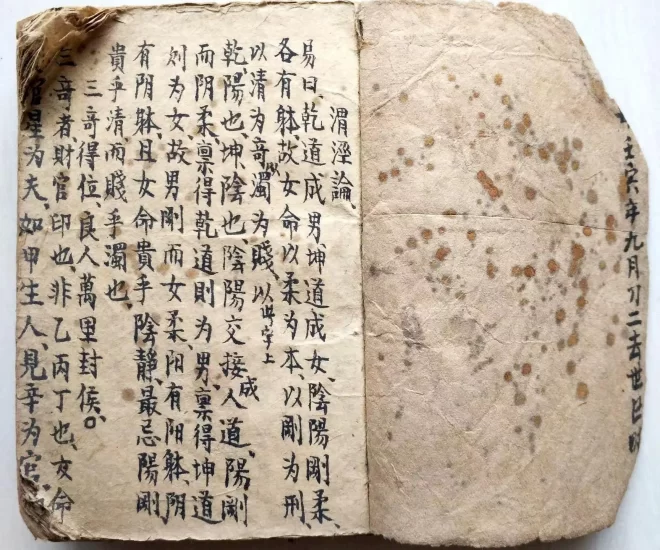 壬寅年九月刀二去世巳
渭涇論、
易曰、乾道成男、坤道成女、陰陽剛柔、
各有躰、故女命以柔為本、以剛為刑
以清為奇、以濁為賤、以此字上
乾陽也、坤、陰也、陰陽交接、成人道、陽剛
而阴柔、稟得乾道則为男、稟得坤道
则为女、故男剛而女柔、阳有阳躰、阴
有阴躰、且女命貴乎陰静、最忌陽剛
貴乎清、而賤乎濁也、
三奇得位良人萬里封侯。
三奇者、財官印也、非乙丙丁也、女命
官星为夫、如甲生人、見辛为官、